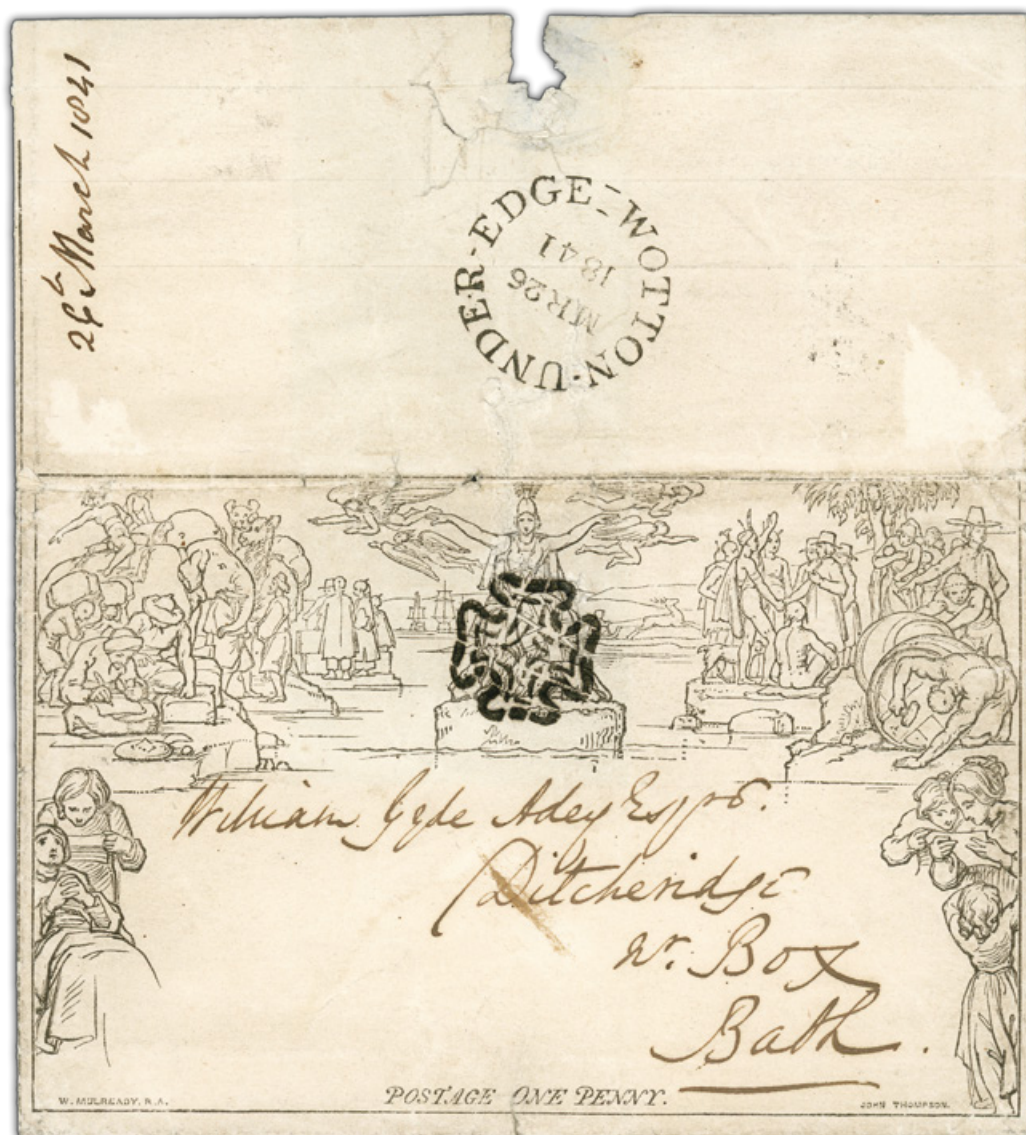 26th March 1841
WOTTON-UNDER-EDGE-
MR 26
1841
William Gyde Adey Esqre.
Ditcheridge
nr. Box
Bath.
W. MULREADY, R.A.
POSTAGE ONE PENNY.
JOHN THOMPSON.